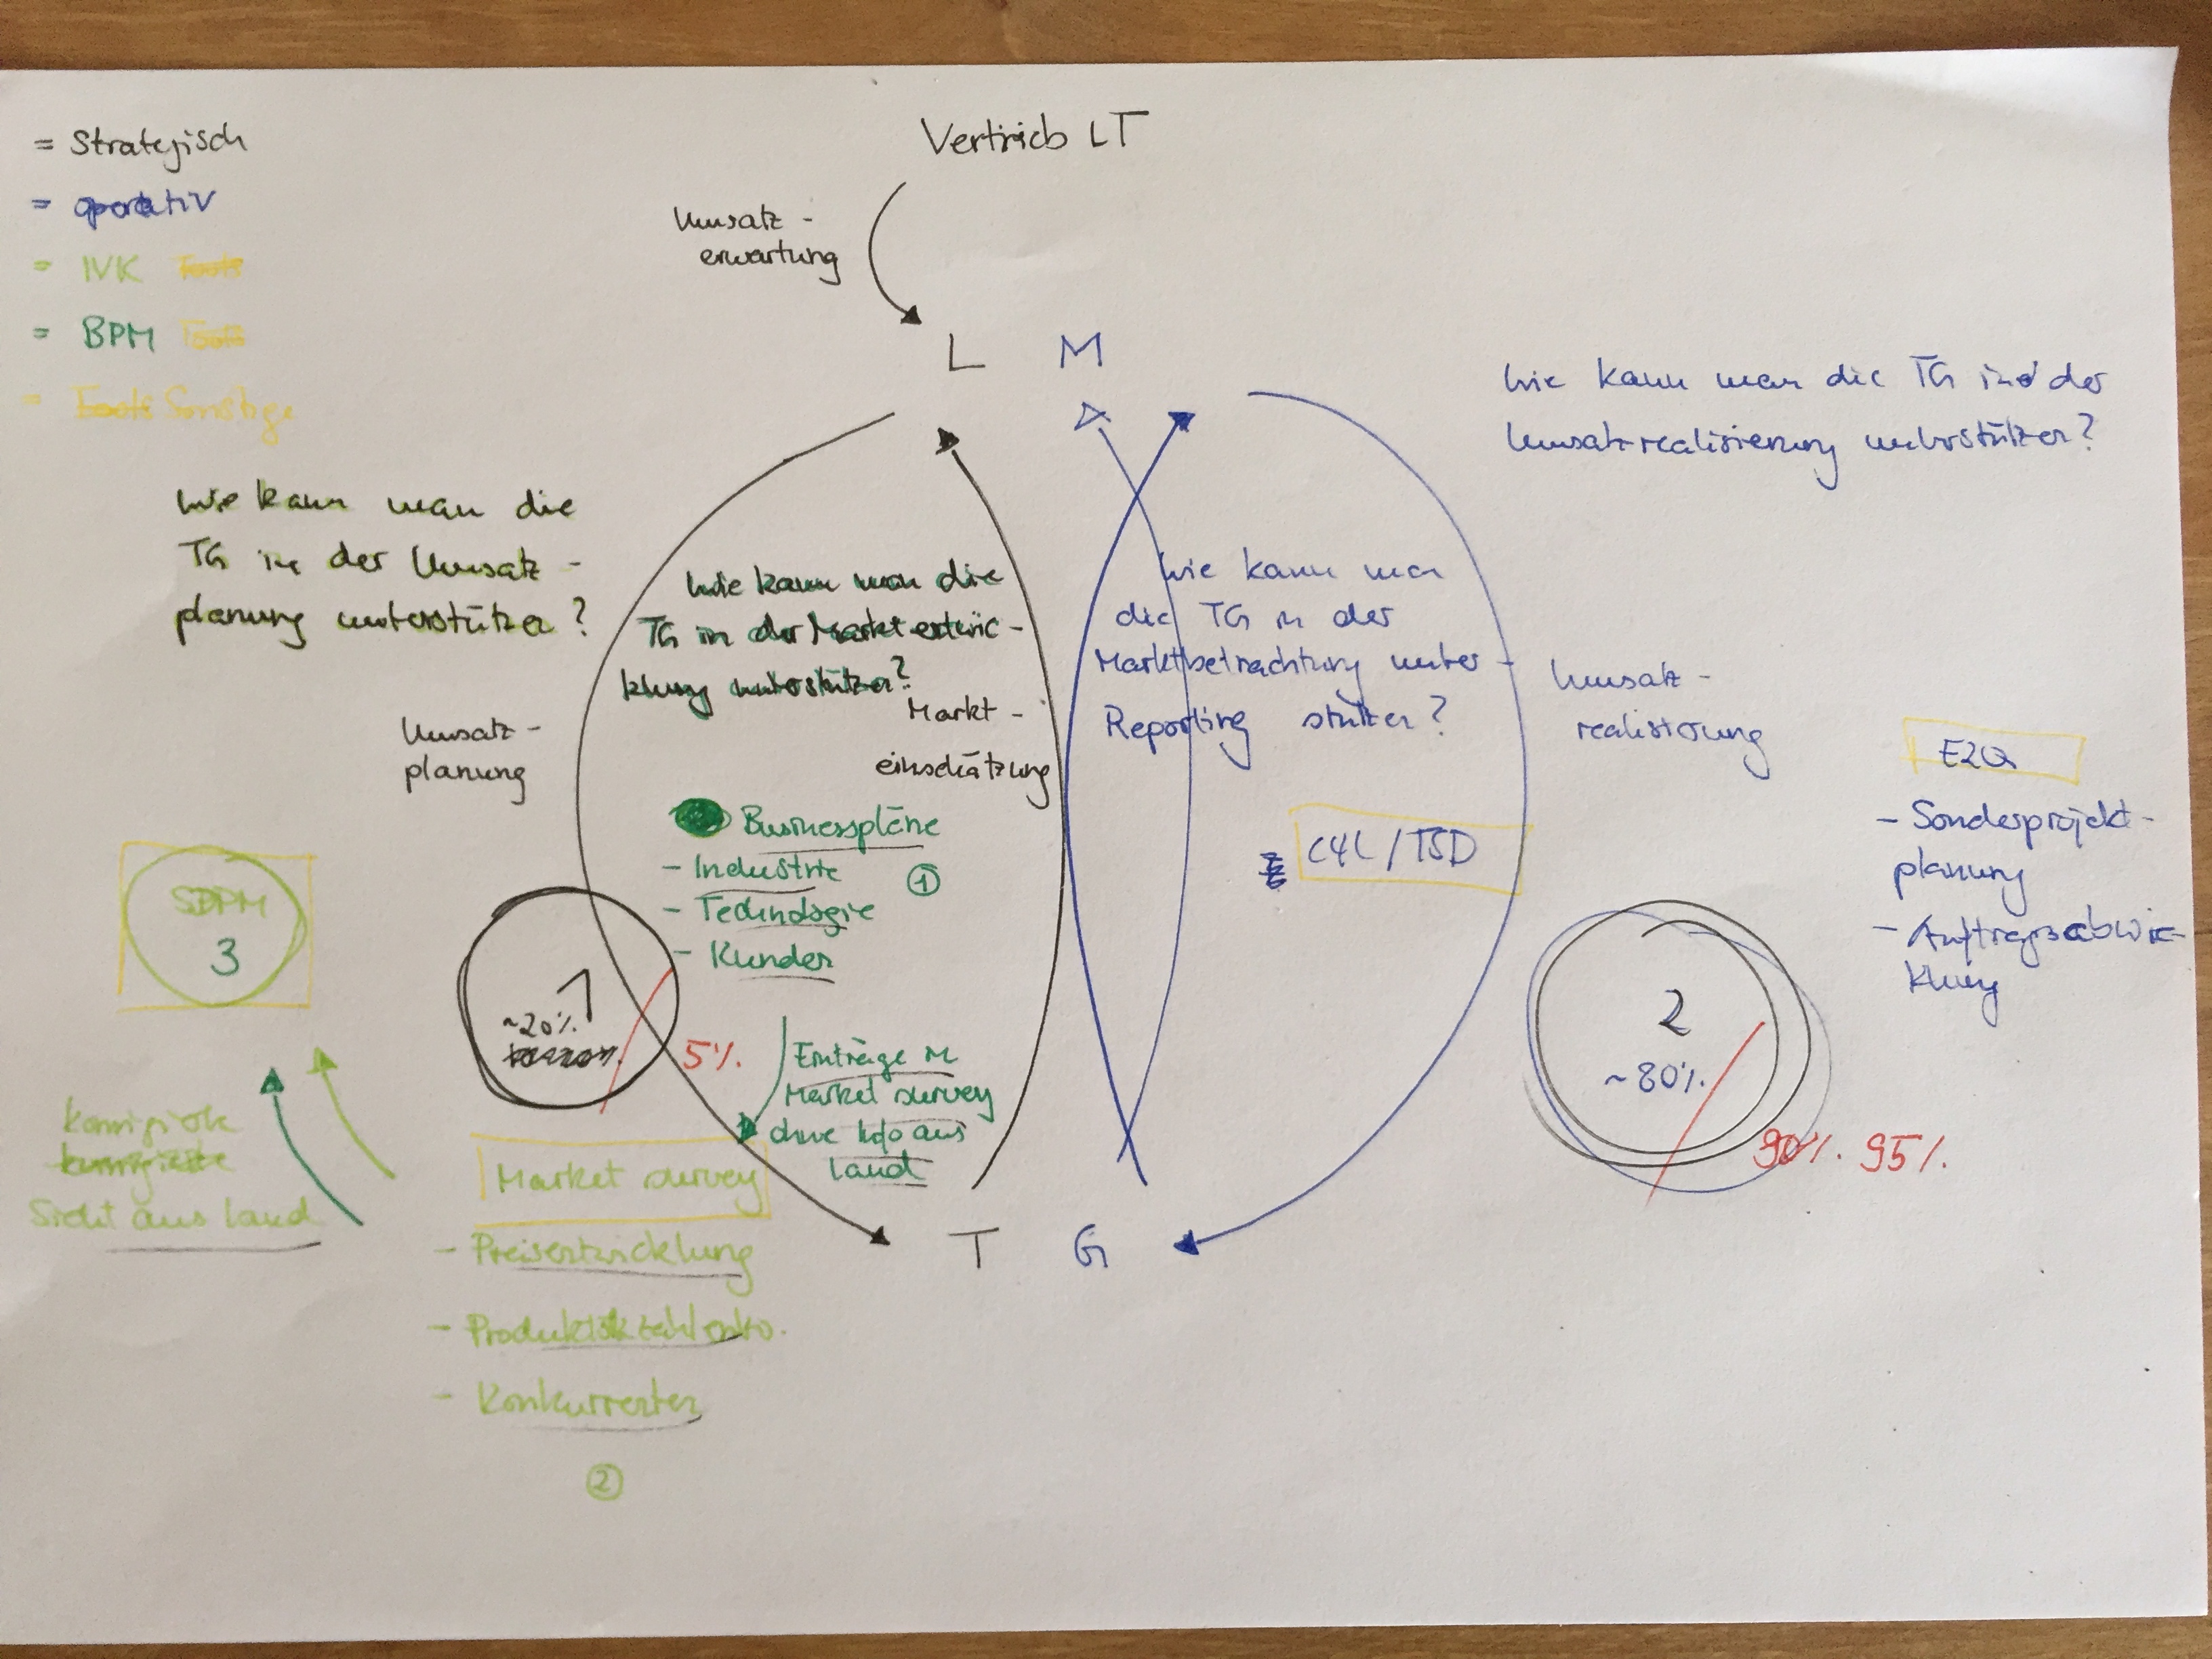 Vertrieb LT
= Strategisch
= operativ
= IVK Tools
= BPM Tools
= Tools Sonstige
Umsatz -
erwartung
L M
Wie kann man die TG in der
Umsatzrealisierung unterstützen?
Wie kann man die
TG in der Umsatz -
planung unterstützen?
Wie kann man die
TG in der Marktentwic -
klung unterstützen?
Wie kann man
die TG in der
Marktbetrachtung unter -
Reporting stützen?
Umsatz -
planung
Markt -
einschätzung
Umsatz -
realisierung
Businesspläne
- Industrie
- Technologie
- Kunden
1
C4C / TSD
E2Q
- Sonderprojekt-
planung
- Auftragsabwic-
klung
SDPM
3
1
~20%
5%
2
~80%
90% 95%
Einträge in
Market survey
ohne Info aus
Land
Sicht aus Land
Market survey
- Preisentwicklung
-
- Konkurrenten
2
T G